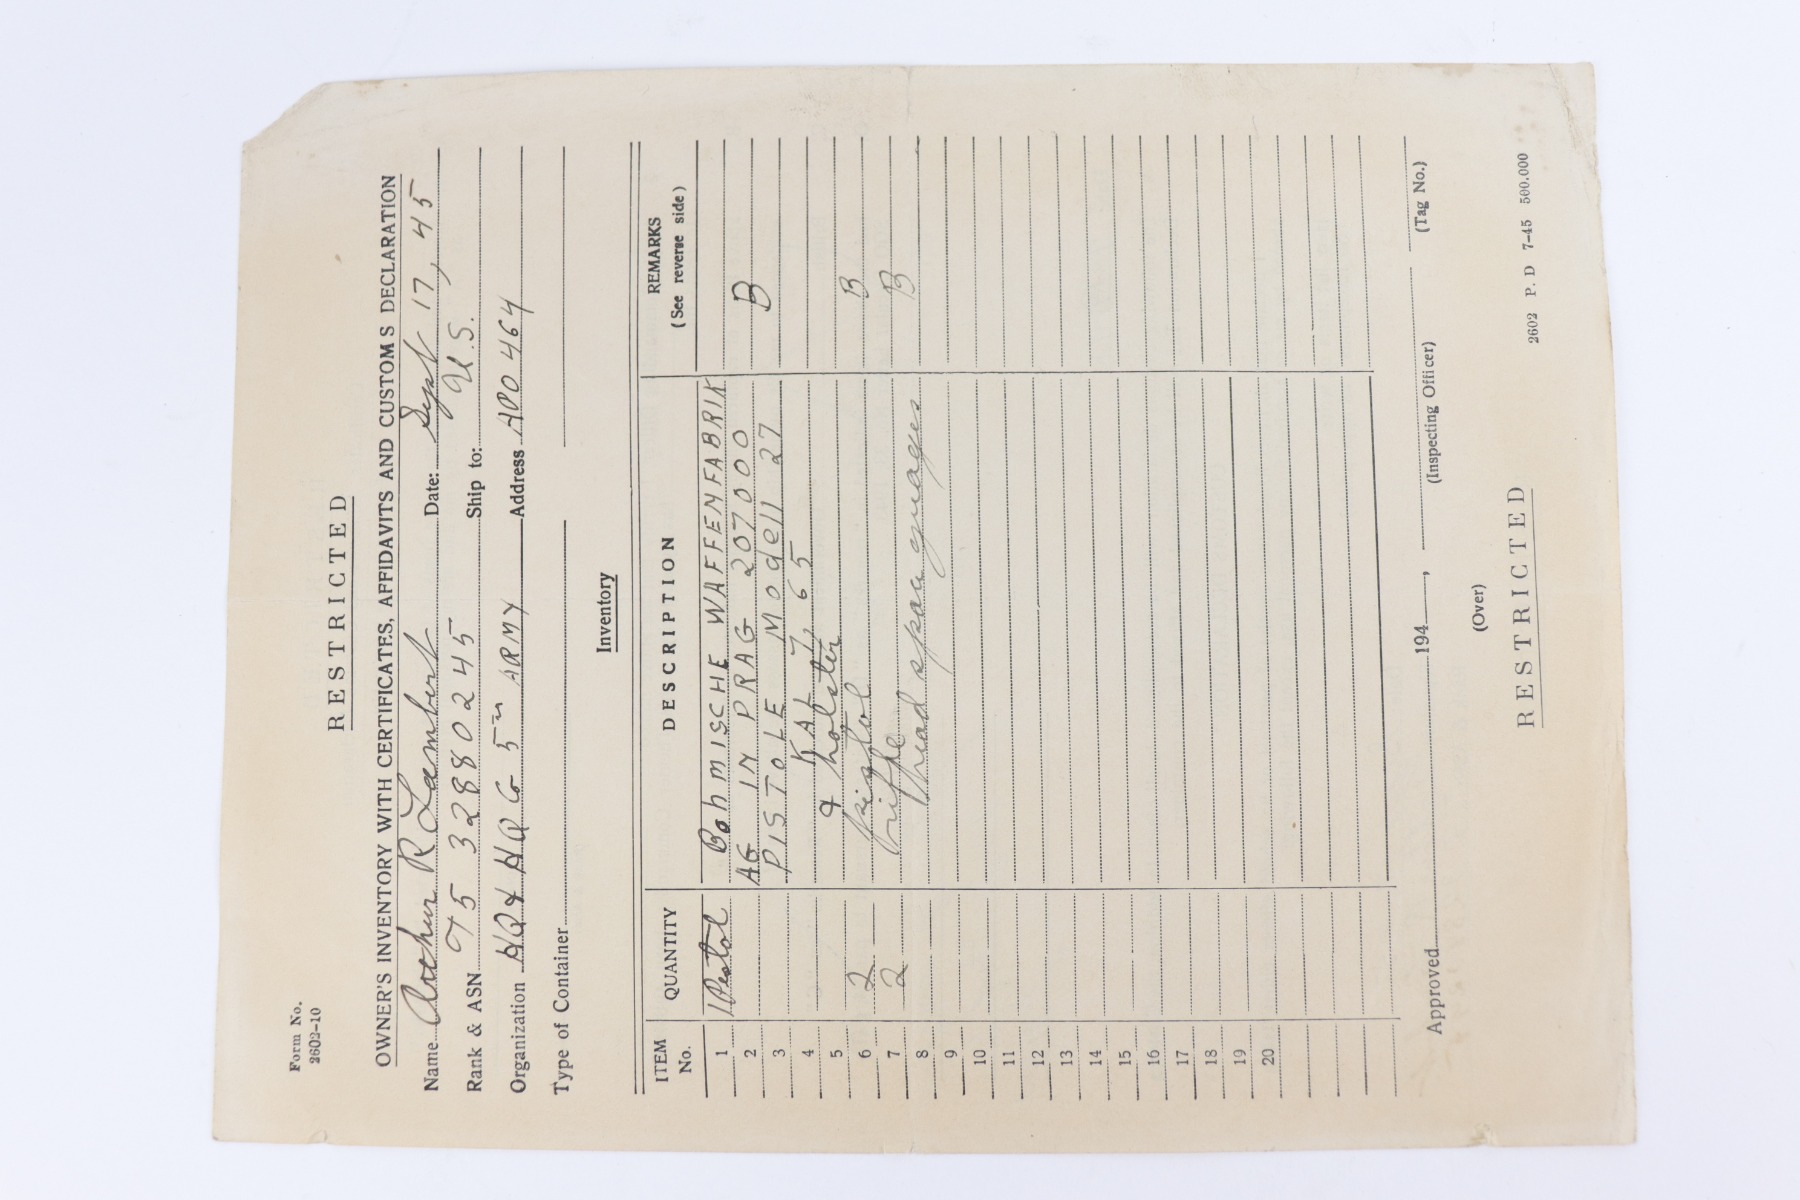 Form No.
2602-10
RESTRICTED
OWNER'S INVENTORY WITH CERTIFICATES, AFFIDAVITS AND CUSTOMS DECLARATION
Name Archer R Lambert Date: Sept 17, 45
Rank & ASN T5 32880245 Ship to: U.S.
Organization HQ & HQ Co 5th ARMY Address APO 464
Type of Container
Inventory
ITEM No. QUANTITY DESCRIPTION REMARKS (See reverse side)
1 1 Pistol BohMISCHE WAFFENFABRIK
2 AG IN PRAG 207000 B
3 PISTOLE Modell 27
4 KAL 7,65
5 & holster
6 2 pistol B
7 2 rifle B
8 thread
9
10
11
12
13
14
15
16
17
18
19
20
Approved 194 , (Inspecting Officer) (Tag No.)
(Over)
RESTRICTED
2602 P. D 7-45 500.000